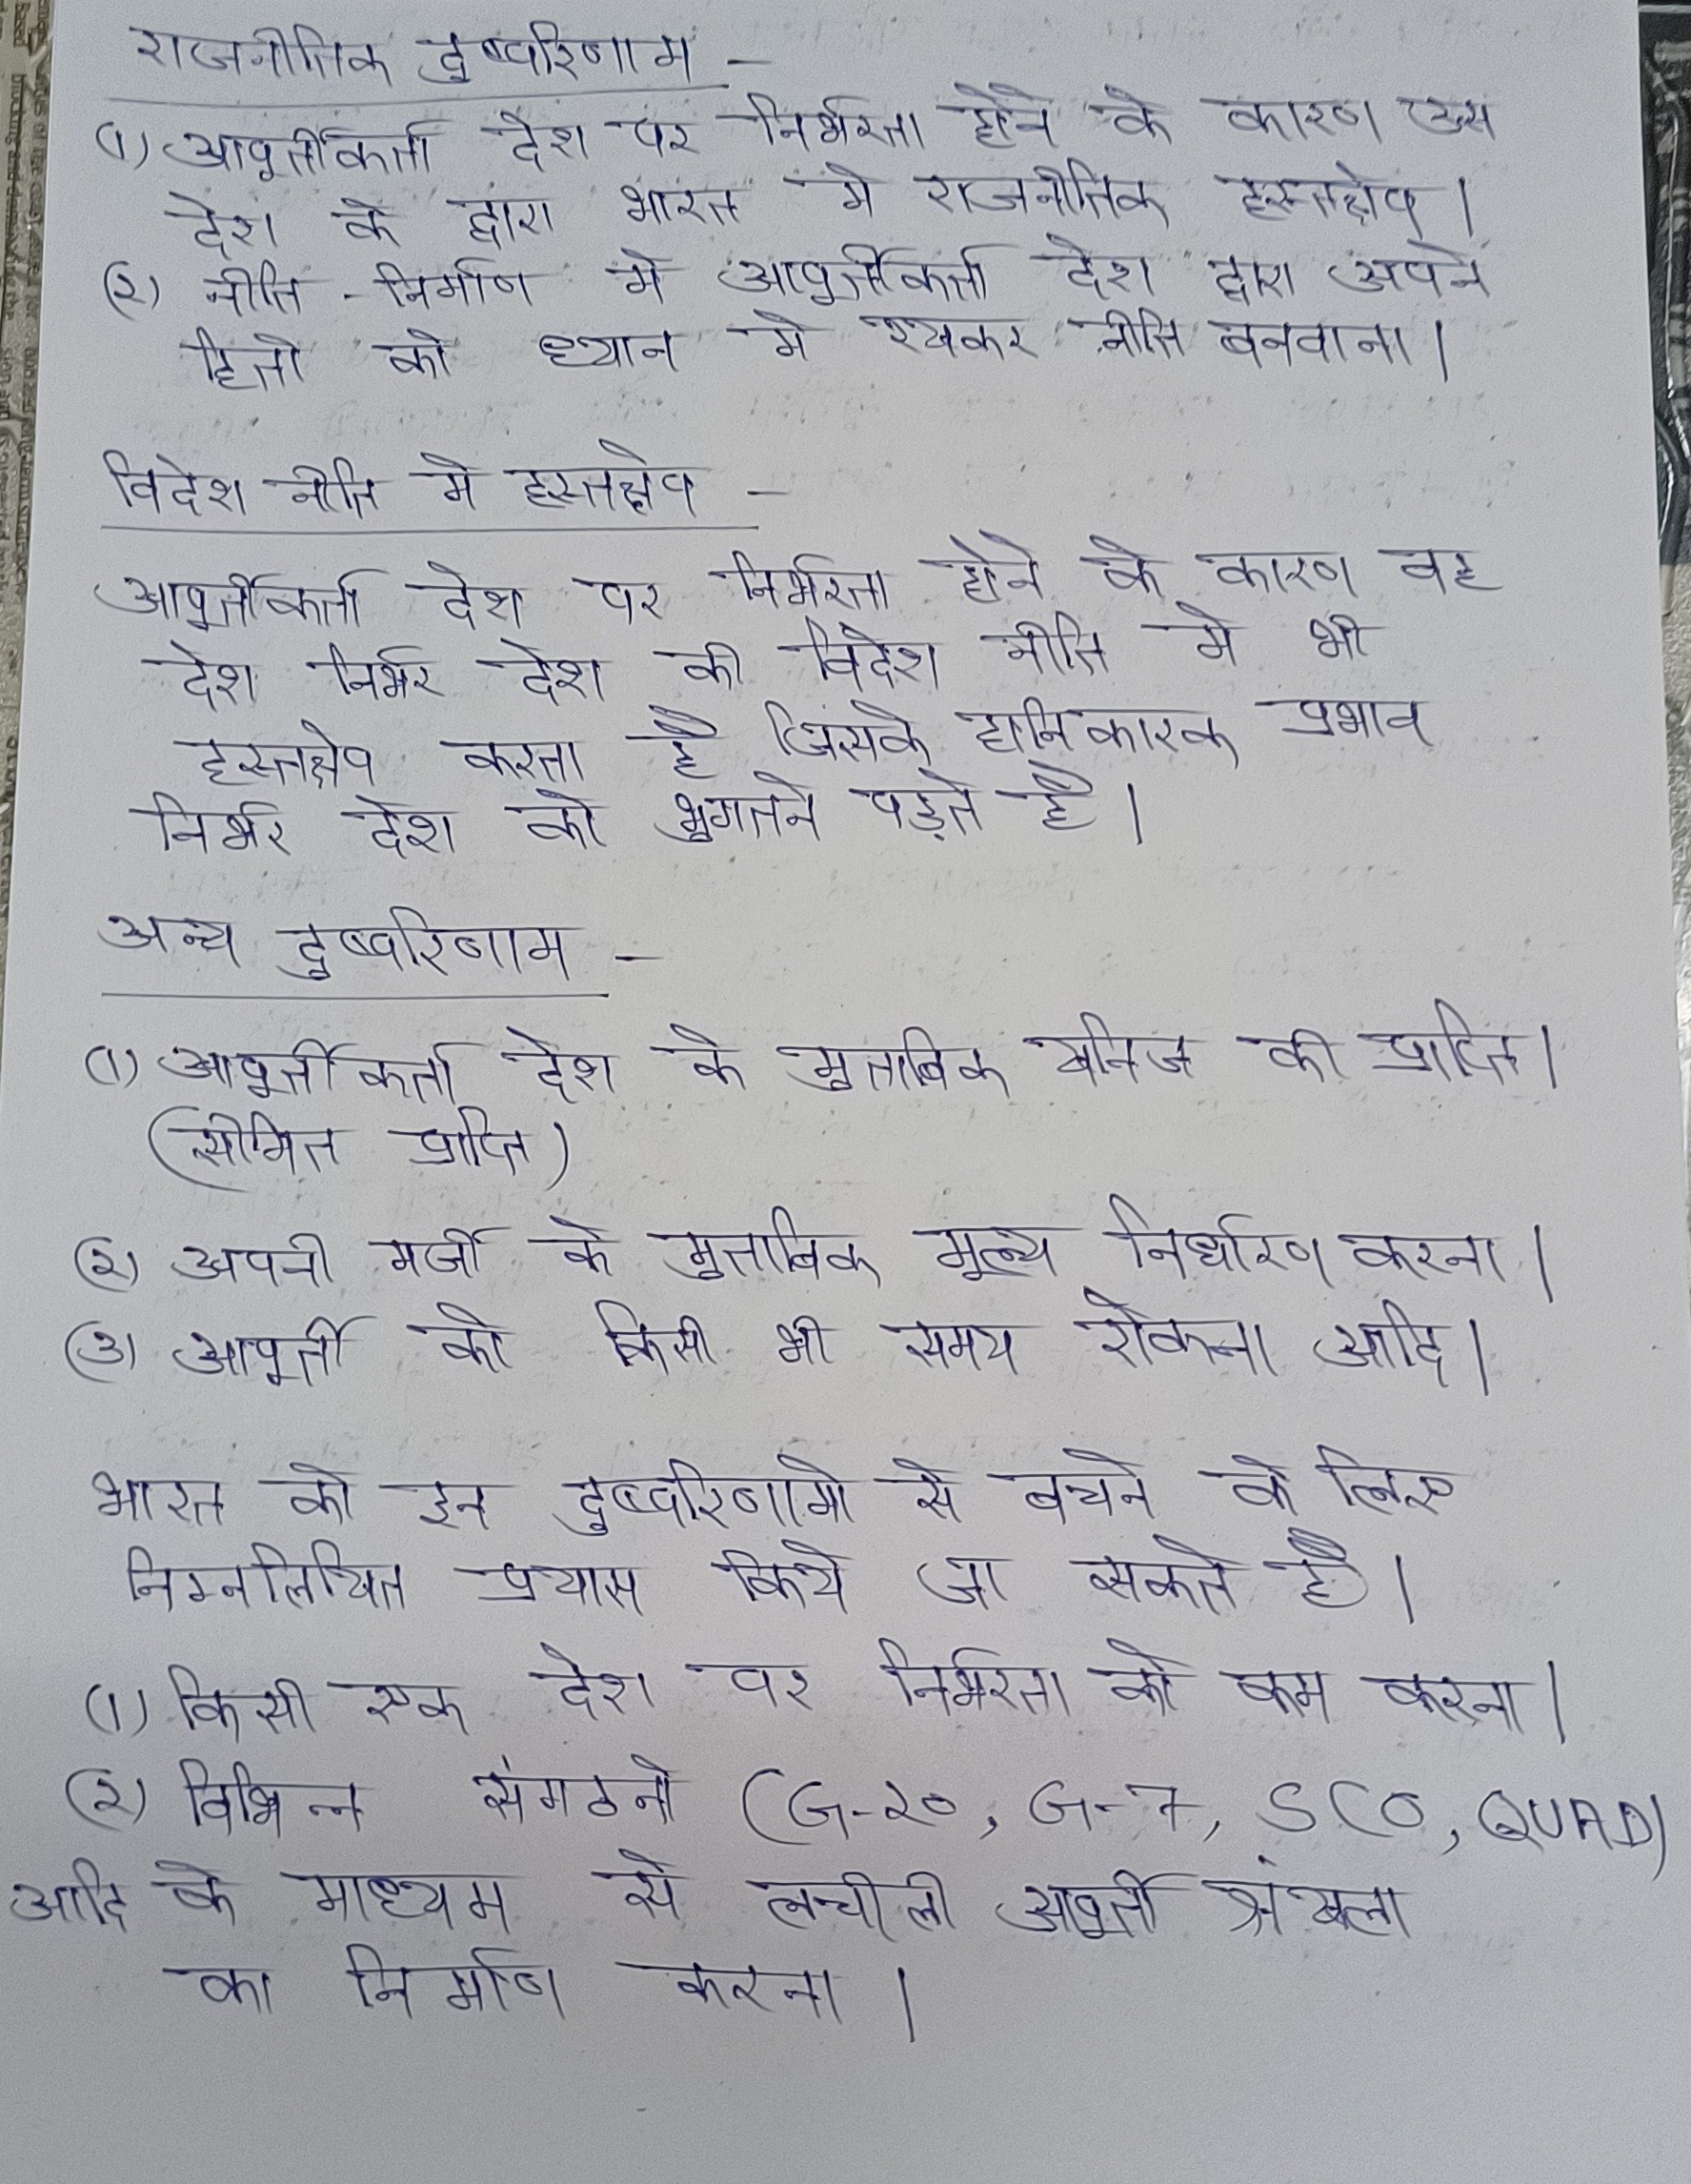 राजनीतिक दुष्परिणाम -
(1) आपूर्तीकर्ता देश पर निर्भरता होने के कारण उस
देश के द्वारा भारत मे राजनीतिक हस्तक्षेप |
(2) नीति - निर्माण मे आपूर्तीकर्ता देश द्वारा अपने
हितो को ध्यान मे रखकर नीति बनवाना |
विदेश नीति मे हस्तक्षेप -
आपूर्तीकर्ता देश पर निर्भरता होने के कारण वह
देश निर्भर देश की विदेश नीति मे भी
हस्तक्षेप करता है जिसके हानिकारक प्रभाव
निर्भर देश को भुगतने पड़ते है |
अन्य दुष्परिणाम -
(1) आपूर्तीकर्ता देश के मुताबिक खनिज की प्राप्ति |
(सीमित प्राप्ति)
(2) अपनी मर्जी के मुताबिक मूल्य निर्धारण करना |
(3) आपूर्ती को किसी भी समय रोकना आदि |
भारत को इन दुष्परिणामो से बचने के लिए
निम्नलिखित प्रयास किये जा सकते है |
(1) किसी एक देश पर निर्भरता को कम करना |
(2) विभिन्न संगठनो (G-20, G-7, SCO, QUAD)
आदि के माध्यम से लचीली आपूर्ती श्रंखला
का निर्माण करना |